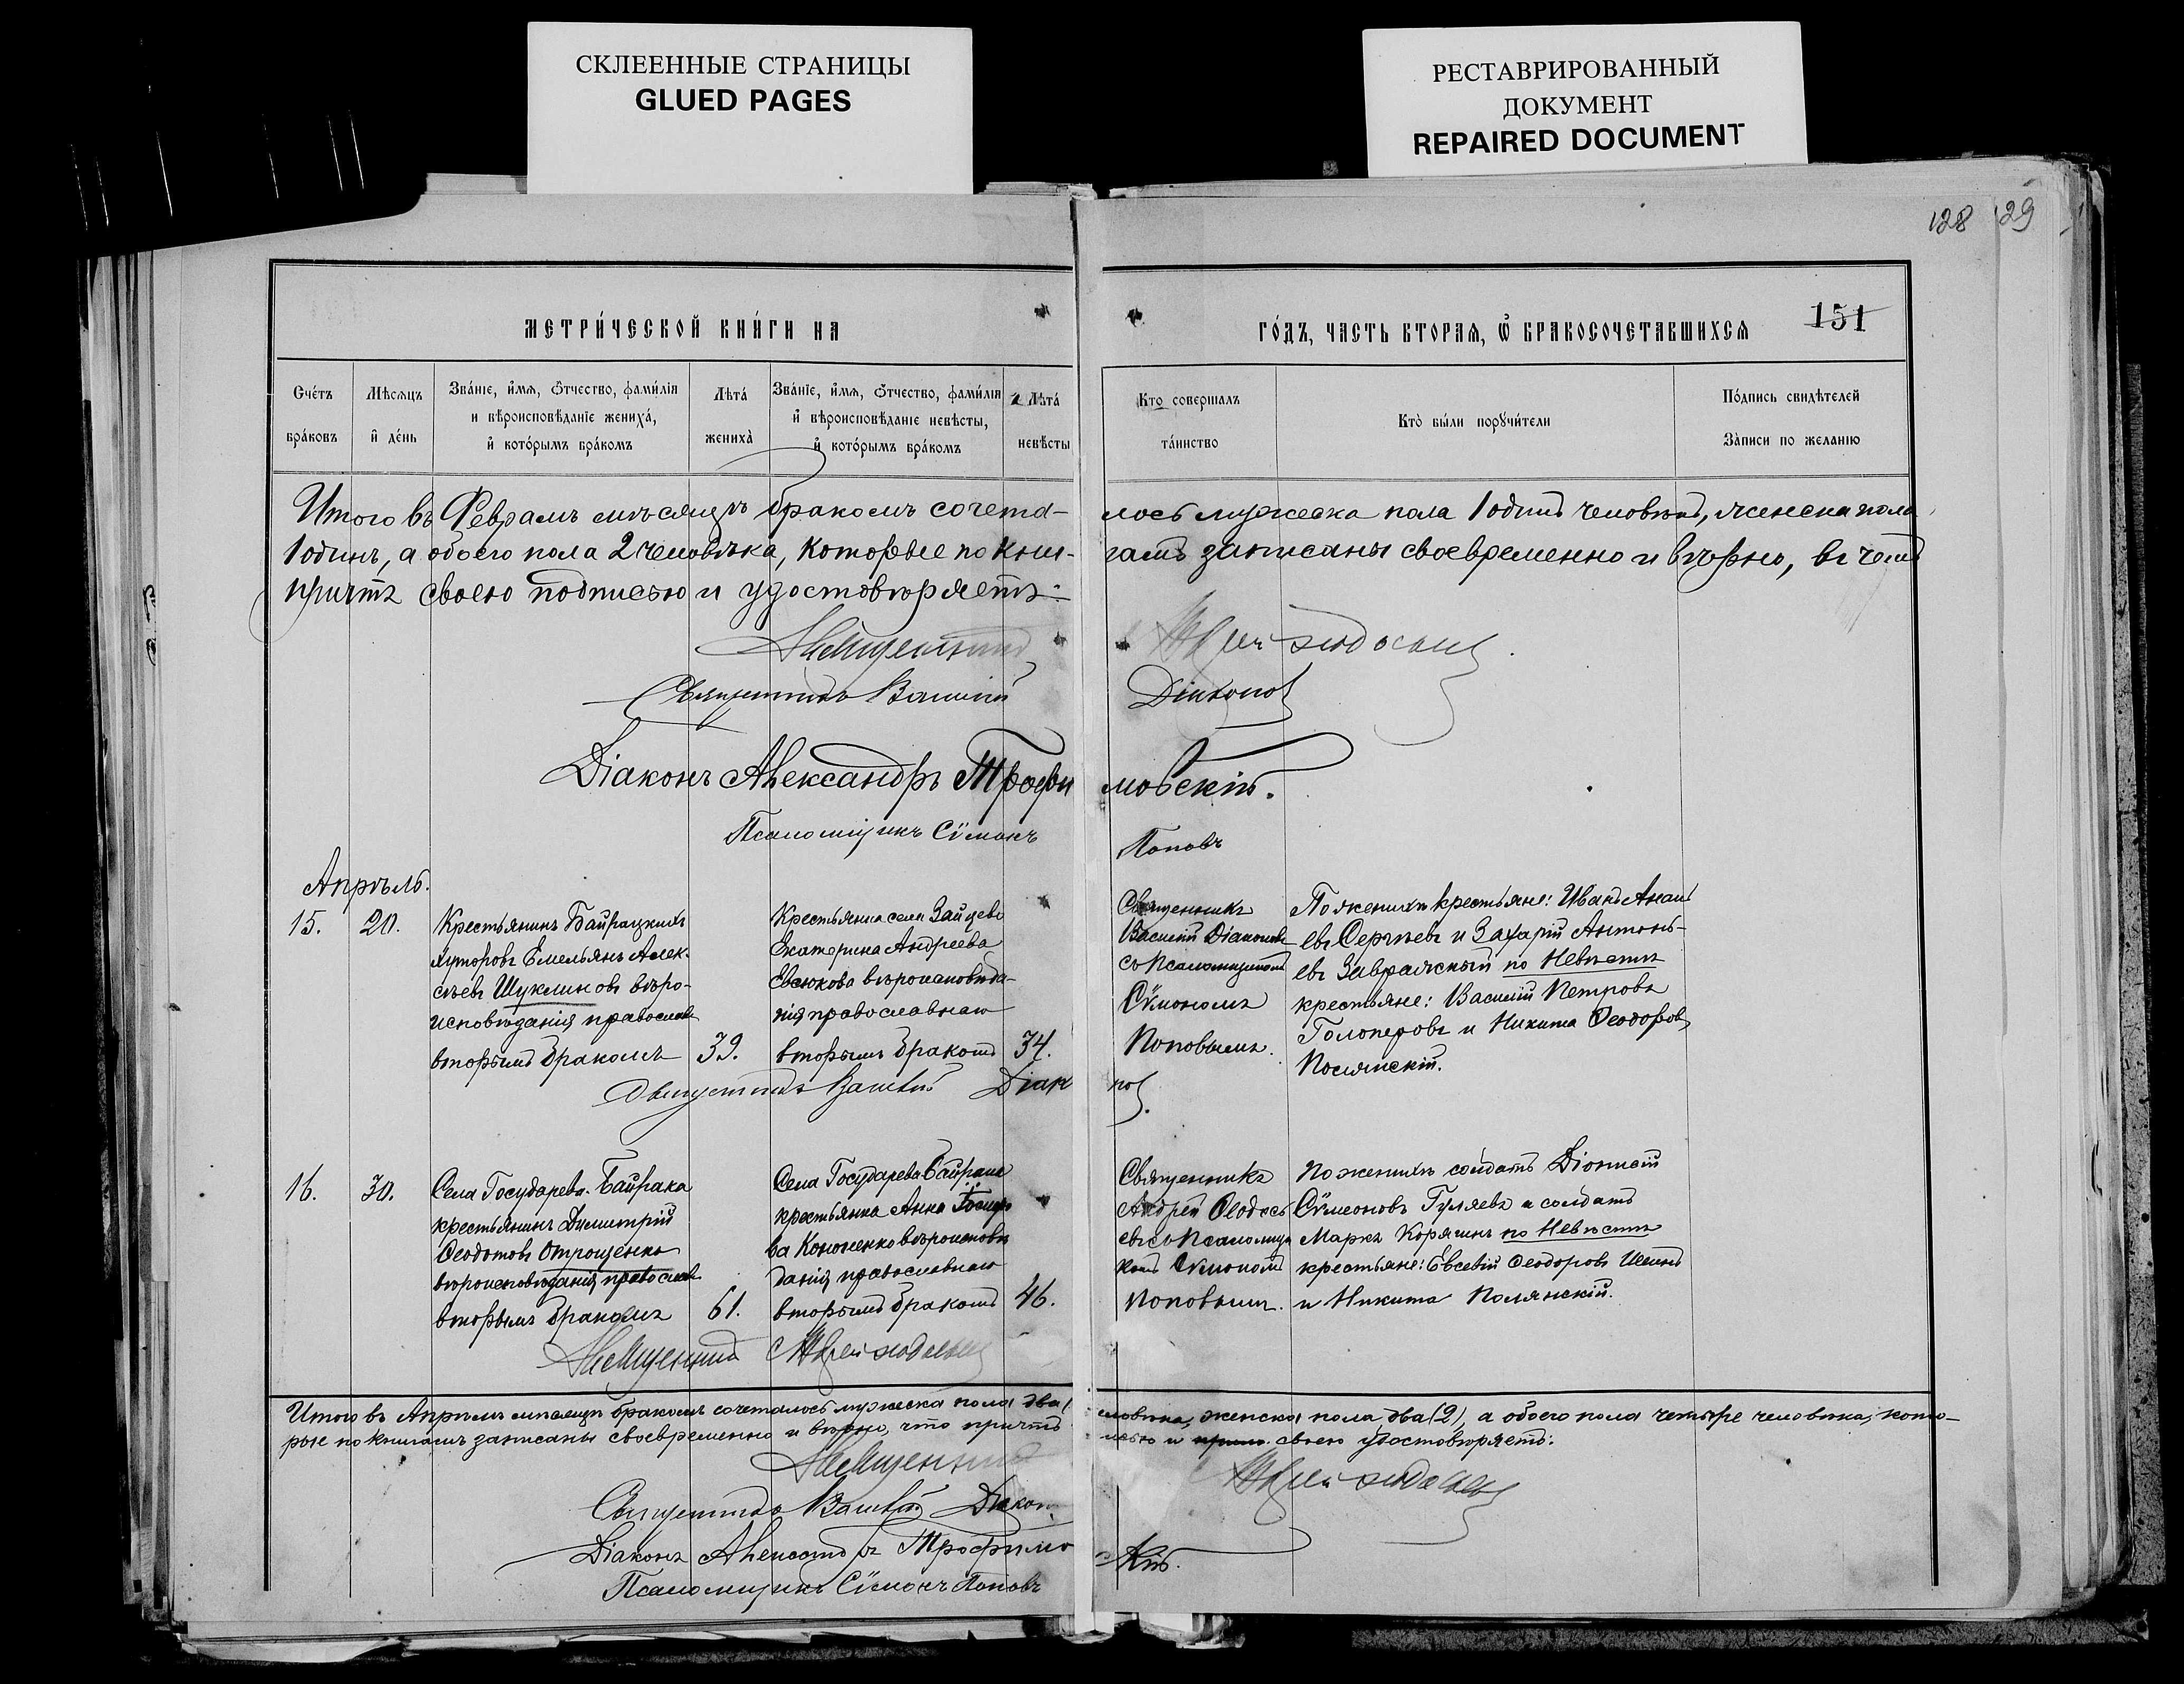 СКЛЕЕННЫЕ СТРАНИЦЫ
GLUED PAGES
РЕСТАВРИРОВАННЫЙ
ДОКУМЕНТ
REPAIRED DOCUMENT
128 129
МЕТРИ́ЧЕСКОЙ КНИ́ГИ НА
ГО́ДЪ, ЧАСТЬ ВТОРАЯ, Ѡ҆ БРАКОСОЧЕТАВШИХСЯ
151
Счётъ
бра́ковъ
Мѣсяцъ
и҆ де́нь
Зва́нїе, и҆мя, ѻ҆тчество, фами́лїя
и вѣроисповѣданїе жениха́,
и҆ кото́рымъ бра́комъ
Лѣта́
жениха̀
Зва́нїе, и҆мя, ѻ҆тчество, фами́лїя
и҆ вѣроисповѣданїе невѣсты,
и҆ кото́рымъ бра́комъ
Лѣта́
невѣсты
Кто совершалъ
та́инство
Кто̀ бы́ли порꙋчи́тели
По́дпись свидѣтелей
За̀писи по желанїю
Итого въ Февралѣ мѣсяцѣ бракомъ сочета-
лось мужеска пола 1 одинъ человѣкъ, женска пола
1 одинъ, а обоего пола 2 человѣка, которые по кни-
гамъ записаны своевременно и вѣрно, въ чемъ
причтъ своею подписью и удостовѣряетъ:
Священникъ
Священникъ Василій
Діаконовъ
Діаконъ Александръ Трофи
мовскій.
Псаломщикъ Сѵмонъ
Поповъ
Апрѣль.
15. 20.
Крестьянинъ Байрацкихъ
хуторовъ Емельянъ Алек-
сѣевъ Шуклинъ вѣро-
исповѣданія православ
вторымъ бракомъ
39.
Крестьянка села Зайцево
Екатерина Андреева
Евсюкова вѣроисповѣда-
нія православнаго
вторымъ бракомъ
34.
Священникъ
Василій Діаконовъ
съ Псаломщикомъ
Сѵмономъ
Поповымъ.
По женихѣ крестьяне: Иванъ Анань
евъ Сергѣевъ и Захарій Антонь-
евъ Завражскый по Невѣстѣ
крестьяне: Василій Петровъ
Голоперовъ и Никита Ѳеодоровъ
Полянскій.
Священникъ Василій Діак
нов.
16. 30.
Села Государева-Байрака
крестьянинъ Димитрій
Ѳеодотовъ Отрощенко
вѣроисповѣданія православ
вторымъ бракомъ
61.
Села Государева-Байрака
крестьянка Анна
ва Кононенко вѣроисповѣ
данія православнаго
вторымъ бракомъ
46.
Священникъ
Андрей Ѳеодось
евъ съ Псаломщи
комъ Сѵмономъ
Поповымъ.
По женихѣ солдатъ Діонисій
Сѵмеоновъ Гуляевъ и солдатъ
Маркъ Корягинъ по Невѣстѣ
крестьяне: Евсевій Ѳеодоровъ
и Никита Полянскій.
Священникъ
Итого въ Апрѣлѣ мѣсяцѣ бракомъ сочеталось мужеска пола два
человѣка, женска пола два (2), а обоего пола четыре человѣка, кото-
рые по книгамъ записаны своевременно и вѣрно, что причтъ
своею удостовѣряетъ:
Священникъ
Священникъ Василій Діакон
Діаконъ Александръ Трофимо
кій.
Псаломщикъ Сѵмонъ Поповъ